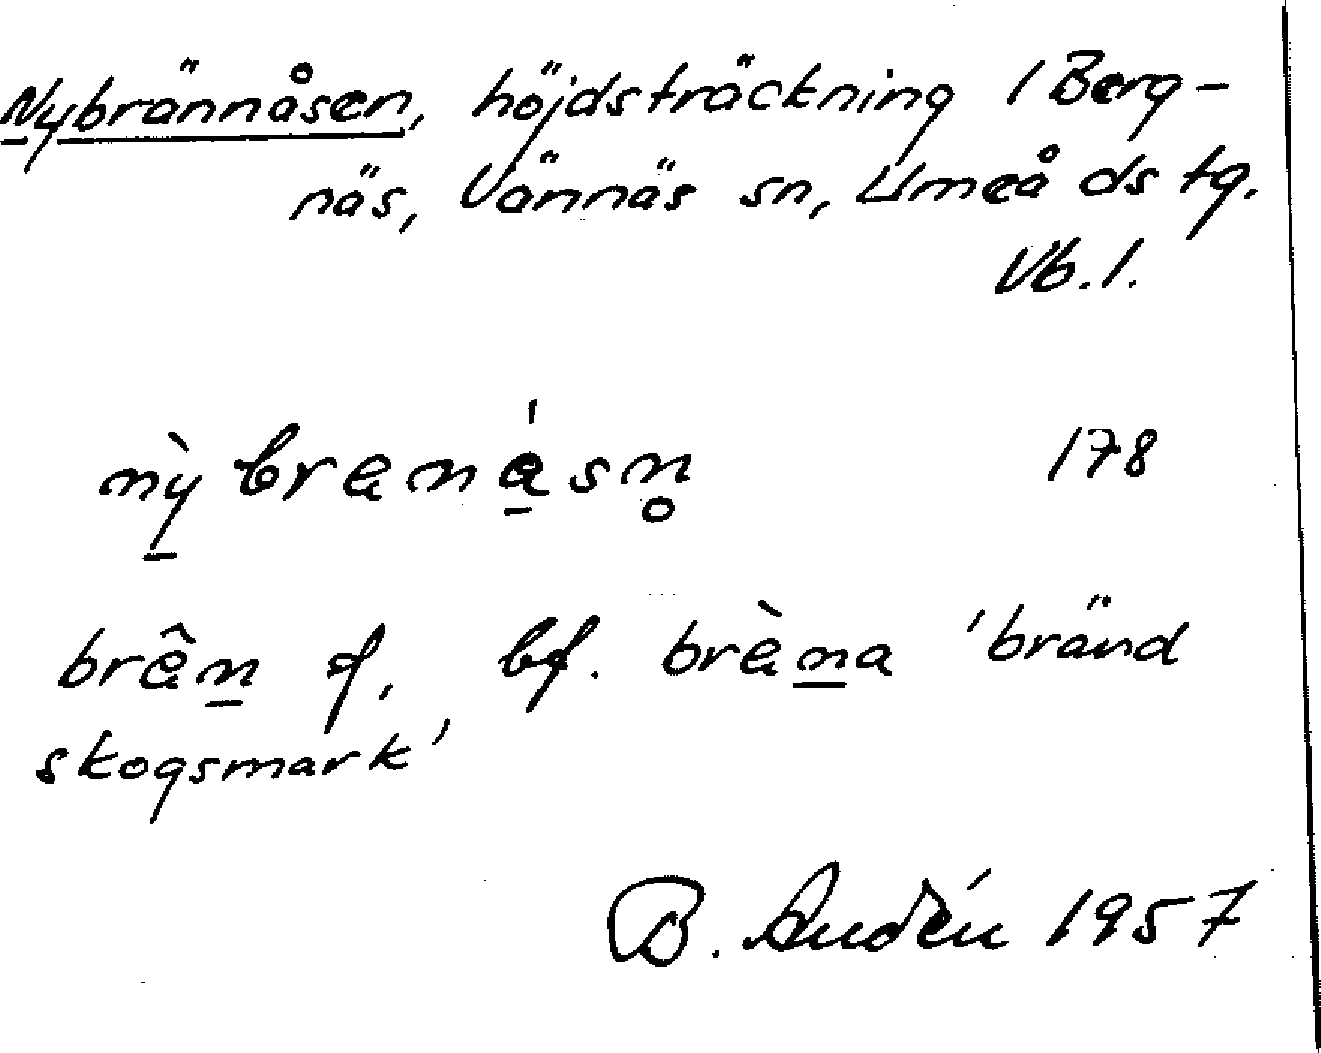 Nybrännåsen, höjdsträckning i Berg-
näs, Vännäs sn, Umeå dstg.
Vb. l.
nỳbrenásn̥ 178
brên f. bf. brèna 'bränd
skogsmark'
B. Audén 1957